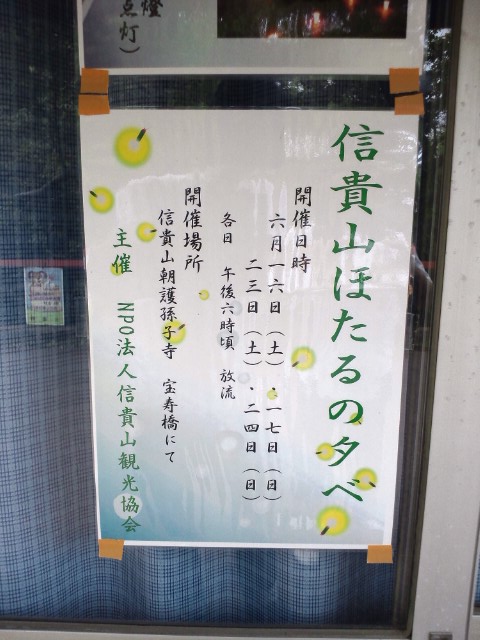 燈
点灯）
信貴山ほたるの夕べ
開催日時
六月一六日（土）・一七日（日）
二三日（土）・二四日（日）
各日　午後六時頃　放流
開催場所
信貴山朝護孫子寺　宝寿橋にて
主催　NPO法人信貴山観光協会